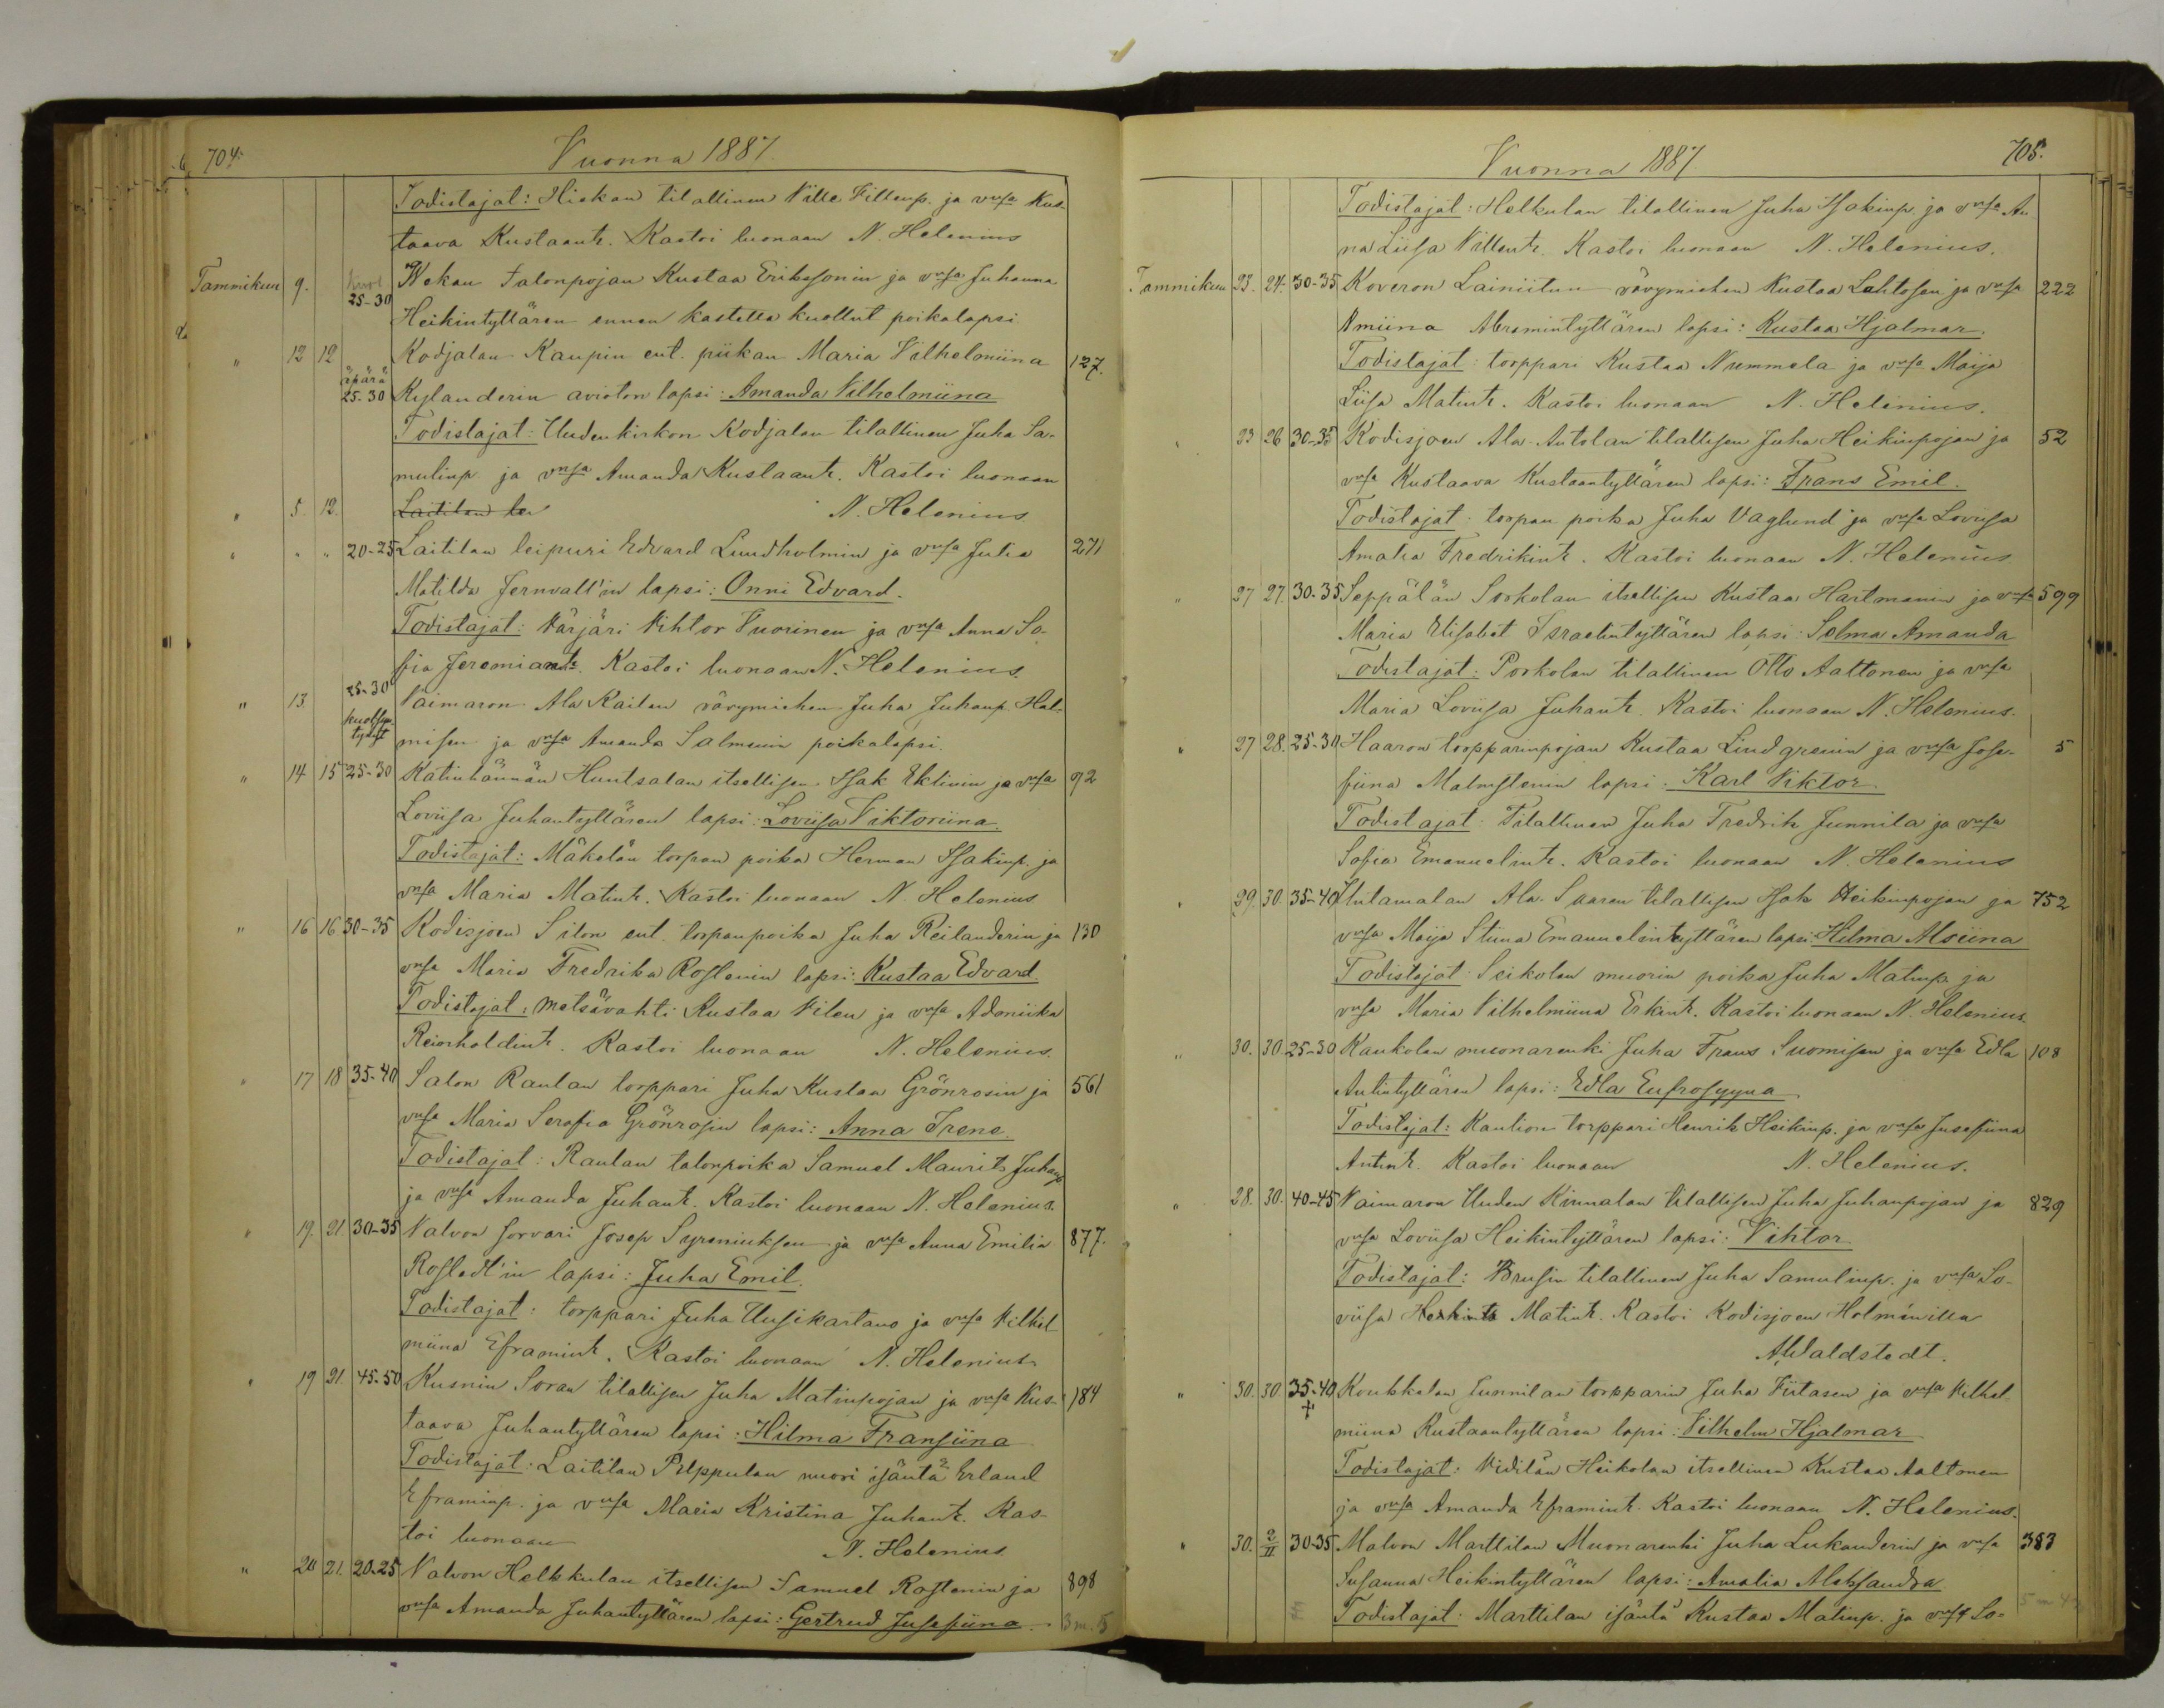 704.
Vuonna 1887.
Todistajat: Hiskan tilallinen Ville Villenp. ja vmsa Kus-
taava Kustaantr. Kastoi luonaan N. Helenius
Tammikuu 9. 25-30 Wekan Talonpojan Kustaa Erikssonin ja vmsa Juhanna
Heikintyttären ennen kastetta kuollut poikalapsi
" 12 12 Kodjalan Kaupin ent. piikan Maria Vilhelmiina 127.
äpärä 25-30 Kylanderin avioton lapsi: Amanda Vilhelmiina
Todistajat: Uudenkirkon Kodjalan tilallinen Juha Sa-
mulinp. ja vmsa Amanda Kustaantr. Kastoi luonaan
" 5. 12. Laitilan N. Helenius
" " " 20-25 Laitilan leipuri Edvard Lundholmin ja vmsa Julia 271
Matilda Jernvall'in lapsi: Onni Edvard.
Todistajat: Värjäri Vihtor Vuorinen ja vmsa Anna So-
fia Jeremiantr. Kastoi luonaan N. Helenius.
" 13. 25-30 Vaimaron Ala Kailan rävymiehen Juha Juhanp. Hel-
kuoll. syn. misen ja vmsa Amanda Salmenin poikalapsi.
" 14 15 25-30 Katinhännän Huntsalan itsellisen Isak Eklinin ja vmsa 92
Loviisa Juhantyttären lapsi: Loviisa Viktoriina.
Todistajat: Mäkelän torpan poika Herman Isakinp. ja
vmsa Maria Matintr. Kastoi luonaan N. Helenius
" 16 16. 30-35 Kodisjoen Silon ent. torpanpoika Juha Reilanderin ja 130
vmsa Maria Fredrika Roslenin lapsi: Kustaa Edvard.
Todistajat: metsävahti Kustaa Vilen ja vmsa Adoniika
Reinholdintr. Kastoi luonaan N. Helenius.
" 17 18 35-40 Salon Rautan torppari Juha Kustaa Grönrosin ja 561
vmsa Maria Serafia Grönrosin lapsi: Anna Irene.
Todistajat: Rautan talonpoika Samuel Maurits Juhanp
ja vmsa Amanda Juhantr. Kastoi luonaan N. Helenius.
" 19. 21. 30-35 Valvon sorvari Josep Syreniuksen ja vmsa Anna Emilia 877.
Rosledt'in lapsi: Juha Emil.
Todistajat: torppari Juha Uusikartano ja vmsa Vilhel
miina Eframintr. Kastoi luonaan N. Helenius
" 19 21. 45-50 Kusnin Soran tilallisen Juha Matinpojan ja vmsa Kus- 184
taava Juhantyttären lapsi: Hilma Fransiina
Todistajat: Laitilan Pelppulan nuori isäntä Erland
Eframinp. ja vmsa Maria Kristina Juhantr. Kas-
toi luonaan N. Helenius.
" 20 21. 20-25 Valvon Helkkulan itsellisen Samuel Roslenin ja 898
vmsa Amanda Juhantyttären lapsi: Gertrud Jusefiina. 3 m. 5
Vuonna 1887.
705.
Todistajat: Helkulan tilallinen Juha Isakinp. ja vmsa An
na Liisa Villentr. Kastoi luonaan N. Helenius.
Tammikuu 23. 24. 30-35 Koveron Lainiitun rävymiehen Kustaa Lehtosen ja vmsa 222
Amiina Abramintyttären lapsi: Kustaa Hjalmar.
Todistajat: torppari Kustaa Nummela ja vmsa Maija
Liisa Matintr. Kastoi luonaan N. Helenius.
" 23 26 30-35 Kodisjoen Ala-Antolan tilallisen Juha Heikinpojan ja 52
vmsa Kustaava Kustaantyttären lapsi: Frans Emil.
Todistajat: torpan poika Juha Vaglund ja vmsa Loviisa
Amalia Fredrikintr. Kastoi luonaan N. Helenius
" 27 27. 30-35 Seppälän Sorkolan itsellisen Kustaa Hartmanin ja vmsa 599
Maria Elisabet Israelintyttären lapsi: Selma Amanda
Todistajat: Porkolan tilallinen Otto Aaltonen ja vmsa
Maria Loviisa Juhantr. Kastoi luonaan N. Helenius.
" 27 28. 25-30 Haaron torpparinpojan Kustaa Lindgrenin ja vmsa Jose- 5
fiina Malmstenin lapsi: Karl Viktor.
Todistajat: Tilallinen Juha Fredrik Junnila ja vmsa
Sofia Emanuelintr. Kastoi luonaan N. Helenius
" 29. 30. 35-40 Untamalan Ala-Saaren tilallisen Isak Heikinpojan ja 752
vmsa Maija Stiina Emanuelintyttären lapsi: Hilma Alviina
Todistajat: Seikolan nuorin poika Juha Matinp. ja
vmsa Maria Vilhelmiina Erkintr. Kastoi luonaan N. Helenius.
" 30. 30. 25-30 Kaukolan muonarenki Juha Frans Suomisen ja vmsa Edla 108
Antintyttären lapsi: Edla Eufrosyyna
Todistajat: Kaution torppari Henrik Heikinp. ja vmsa Jusefiina
Antintr. Kastoi luonaan N. Helenius.
" 28. 30. 40-45 Vaimaron Uuden Kinnalan tilallisen Juha Juhanpojan ja 829
vmsa Loviisa Heikintyttären lapsi: Vihtor
Todistajat: Krusin tilallinen Juha Samulinp. ja vmsa Lo-
viisa Matintr. Kastoi Kodisjoen Holmanilla
A. Waldstedt.
" 30. 30 35-40 Koukkelan Junnilan torpparin Juha Viitasen ja vmsa Vilhel
+ miina Kustaantyttären lapsi: Vilhelm Hjalmar
Todistajat: Vidilän Heikolan itsellinen Kustaa Aaltonen
ja vmsa Amanda Eframintr. Kastoi luonaan N. Helenius.
" 30. 2/II 30-35 Malvon Marttilan Muonarenki Juha Lukanderin ja vmsa 383
Susanna Heikintyttären lapsi: Amalia Aleksandra
Todistajat: Marttilan isäntä Kustaa Matinp. ja vmsa Lo-